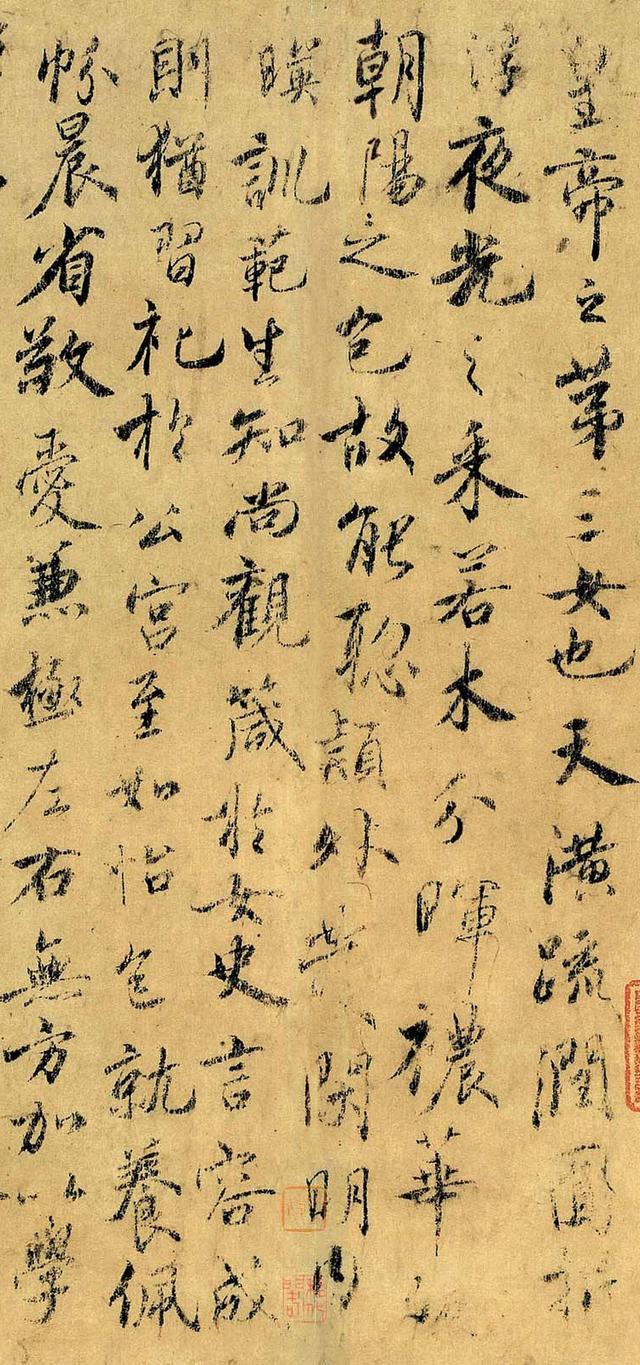 皇帝之第三女也天潢疏潤圓折
浮夜光之采若木分暉襛華
朝陽之色故能聰穎外發閑明內
暎訓範生知尚觀箴於女史言容成
則猶習礼於公宮至如怡色就養佩
帉晨省敬愛兼極左右無方加以學